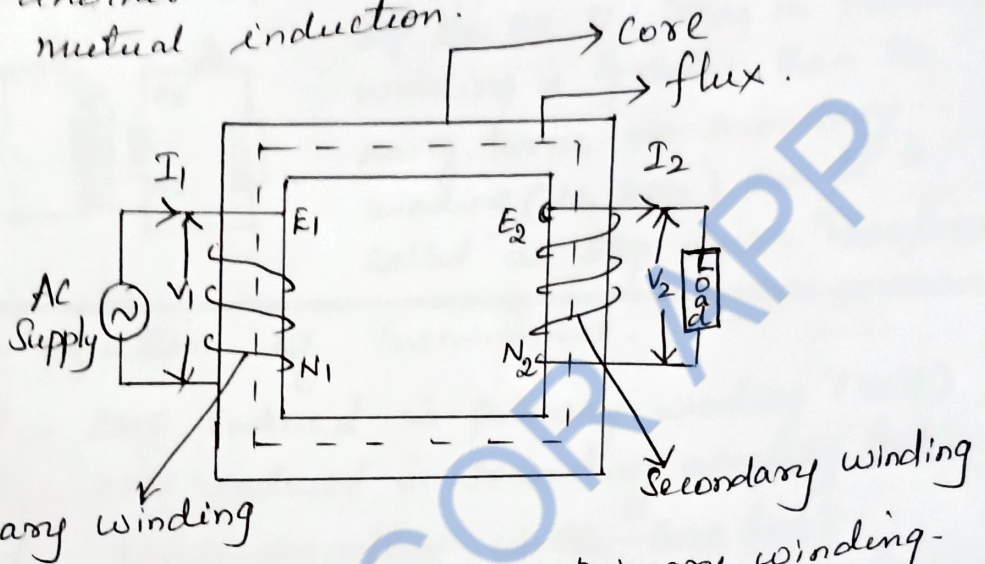 mutual induction.
core
flux.
I1
I2
E1
E2
AC
Supply
V1
V2
Load
N1
N2
Secondary winding
ary winding
winding-
COR APP